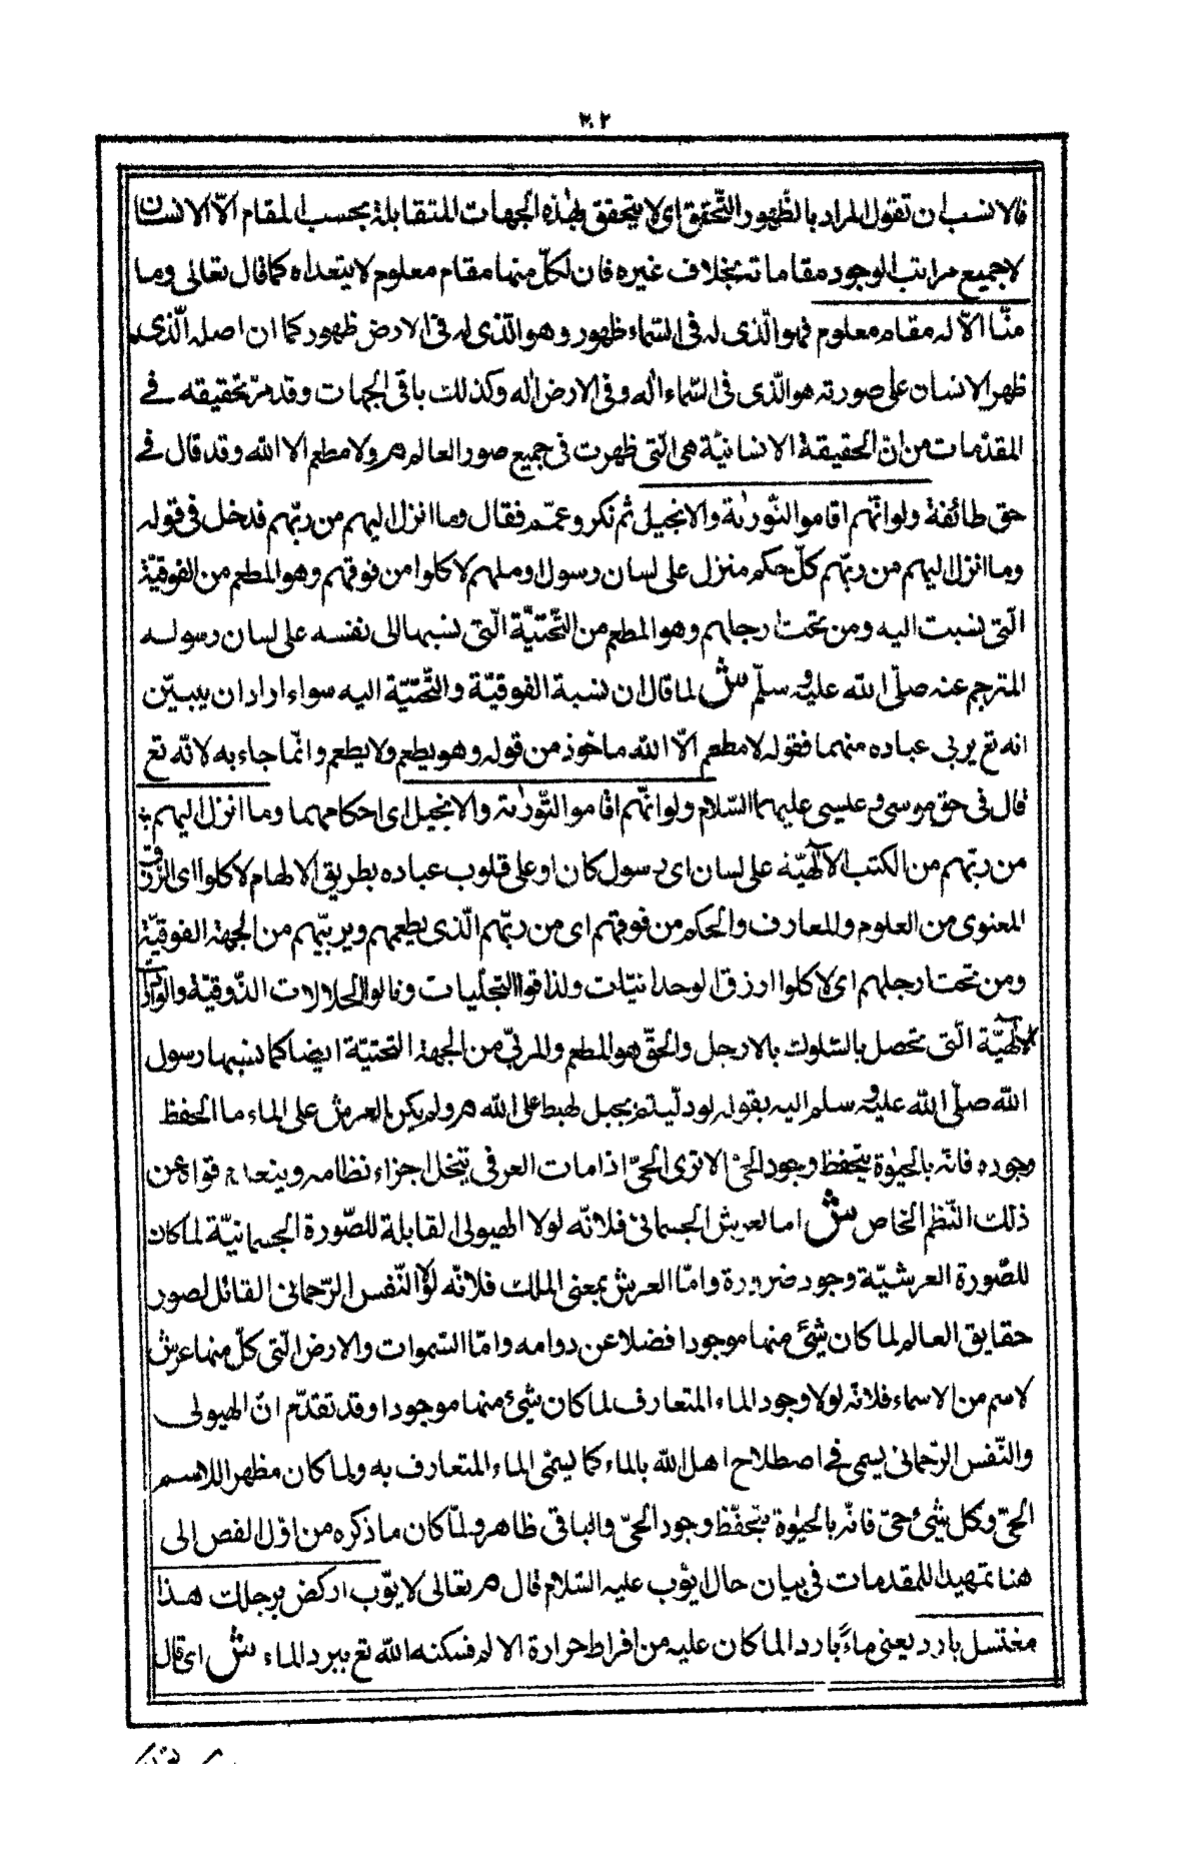 ٣٠٢
فالانسب ان تقول المراد بالظّهور التّحقق اى لا يتحقق بهذه الجهات المتقابلة بحسب المقام الّا الانسان
لا جميع مراتب الوجود مقاماته بخلاف غيره فان لكلّ منها مقام معلوم لا يتعداه كما قال تعالى وما
منّا الّا له مقام معلوم فهو الّذى له فى السّماء ظهور وهو الّذى له فى الارض ظهور كما ان اصله الّذى
ظهر الانسان على صورته هو الّذى فى السّماء اله وفى الارض اله وكذلك باقى الجهات وقد مرّ تحقيقه فى
المقدّمات من ان الحقيقة الانسانيّة هى الّتى ظهرت فى جميع صور العالم هر ولا مطعم الا الله وقد قال فى
حق طائفة ولو انّهم اقاموا التّورية والانجيل ثم نكر وعمّم فقال وما انزل اليهم من ربّهم فدخل فى قوله
وما انزل اليهم من ربّهم كلّ حكم منزل على لسان رسول او ملهم لاكلوا من فوقهم وهو المطعم من الفوقيّة
الّتى نسبت اليه ومن تحت ارجلهم وهو المطعم من التّحتيّة الّتى نسبها الى نفسه على لسان رسوله
المترجم عنه صلّى الله عليه و سلّم ش لما قال ان نسبة الفوقيّة والتّحتيّة اليه سواء اراد ان يبيّن
انه تع يربى عباده منهما فقوله لا مطعم الّا الله ماخوذ من قوله وهو يطعم ولا يطعم وانّما جاء به لانّه تع
قال فى حق موسى و عيسى عليهما السّلام ولو انّهم اقاموا التّورية والانجيل اى احكامهما وما انزل اليهم
من ربّهم من الكتب الالٓهيّة على لسان اى رسول كان او على قلوب عباده بطريق الالهام لاكلوا اى الرزق
المعنوى من العلوم والمعارف والحكم من فوقهم اى من ربّهم الّذى يطعمهم ويربيّهم من الجهة الفوقيّة
ومن تحت ارجلهم اى لاكلوا ارزق الوحدانيّات ولذاقوا التجلّيات ونالوا الحلالات الذّوقيّة والواردات
الالٓهيّة الّتى تحصل بالسّلوك بالارجل والحقّ هو المطعم والمربّى من الجهة التحتيّة ايضا كما نسبها رسول
الله صلّى الله عليه و سلم اليه بقوله لو دلّيتم بحبل لهبط على الله هر ولو لم يكن العرش على الماء ما انحفظ
وجوده فانّه بالحيوة يتحفظ وجود الحىّ الا ترى الحىّ اذا مات العرفى تنخل اجزاء نظامه وينعدم قواه عن
ذلك النّظم الخاص ش اما لعرش الجسمانى فلانّه لولا الهيولى القابلة للصّورة الجسمانيّة لما كان
للصّورة العرشيّة وجود ضرورة وامّا العرش بمعنى الملك فلانّه لولا النّفس الرّحمانى القائل لصور
حقايق العالم لما كان شئ منها موجودا فضلا عن دوامه وامّا السّموات والارض الّتى كلّ منها عرش
لاسم من الاسماء فلانّه لولا وجود الماء المتعارف لما كان شئ منها موجودا وقد تقدّم انّ الهيولى
والنّفس الرّحمانى يسمى فى اصطلاح اهل الله بالماء كما يسمّى الماء المتعارف به ولما كان مظهر اللاسم
الحىّ وكل شئ حىّ فانّه بالحيوة يتحفّظ وجود الحىّ والباقى ظاهر ولمّا كان ما ذكره من اوّل الفص الى
هنا تمهيدا للمقدمات فى بيان حال ايّوب عليه السّلام قال هر تعالى لايّوب اركض برجلك هذا
مغتسل بارد يعنى ماءً باردا لما كان عليه من افراط حرارة الالم فسكنه الله تع ببرد الماء ش اى قال